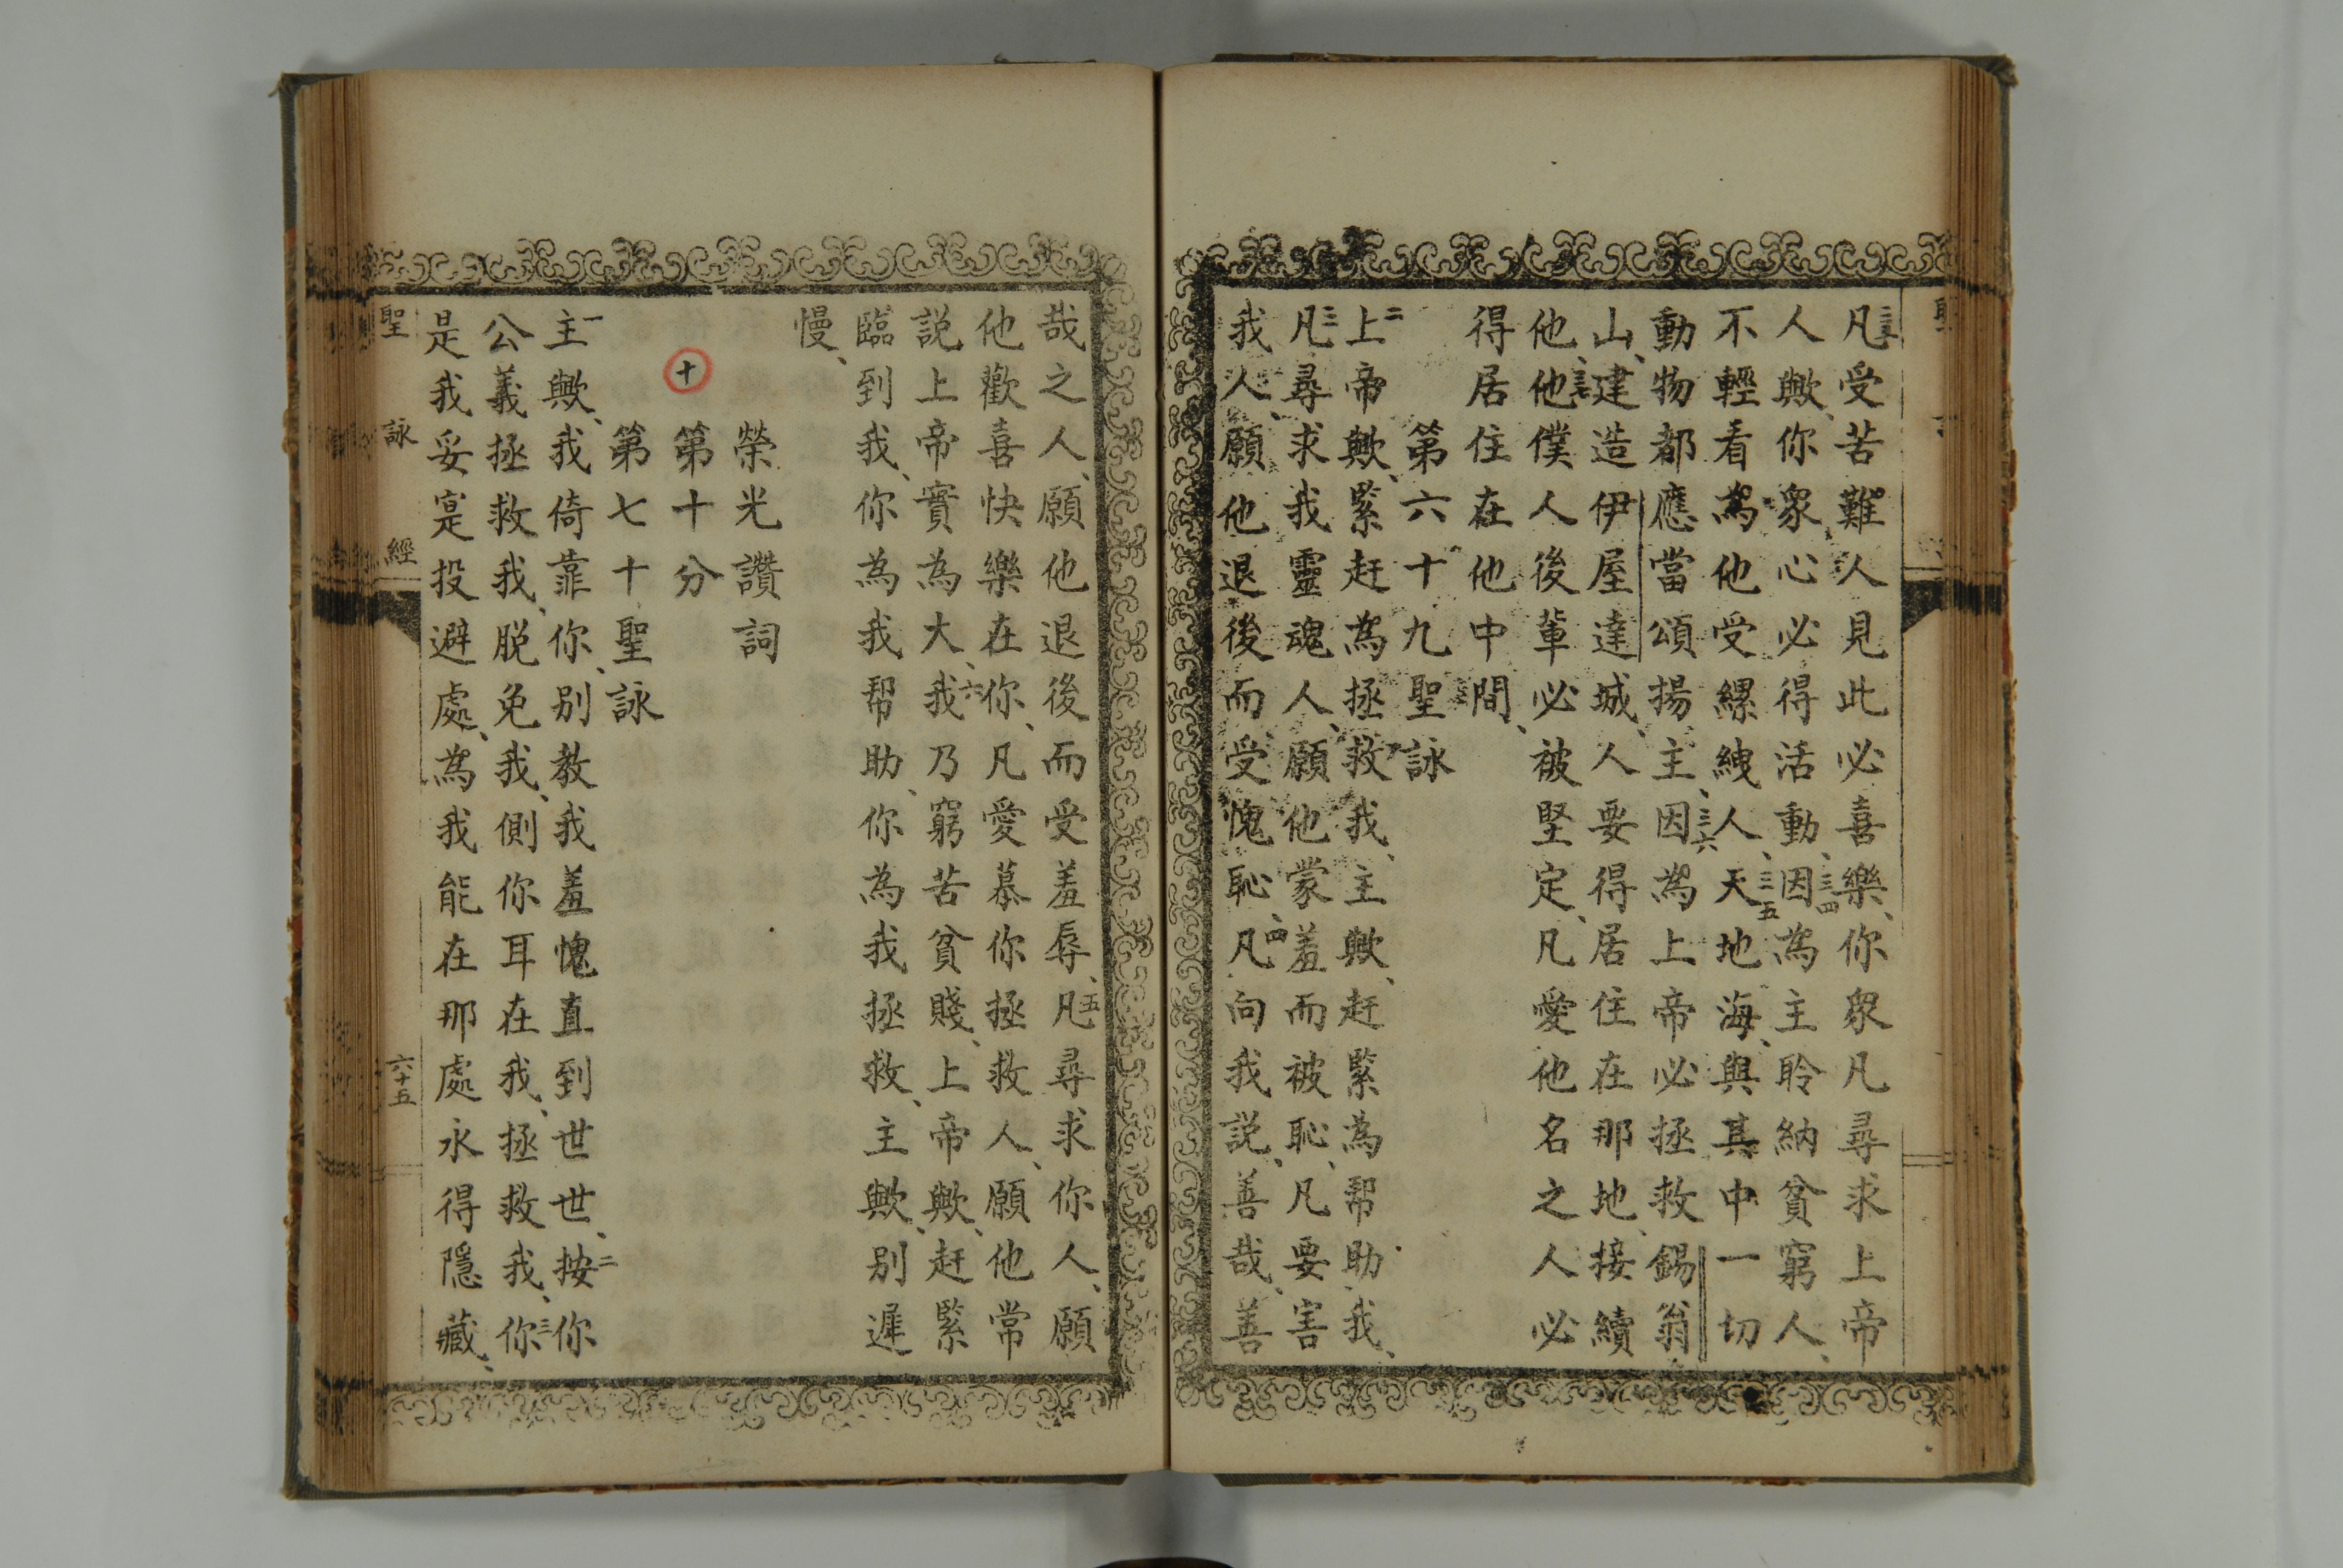 三三凡受苦難人見此必喜樂、你眾凡尋求上帝
人歟、你眾心必得活動、三四因為主聆納貧窮人、
不輕看為他受縲絏人、三五天地海、與其中一切
動物都應當頌揚主、三六因為上帝必拯救錫翁
山、建造伊屋達城、人要得居住在那地、接續
他、三七他僕人後輩必被堅定、凡愛他名之人必
得居住在他中間、
第六十九聖詠
二上帝歟、緊赶為拯救我、主歟、赶緊為帮助我、
三凡尋求我靈魂人、願他蒙羞而被恥、凡要害
我人、願他退後而受愧恥、四凡向我説、善哉、善
哉之人、願他退後而受羞辱、五凡尋求你人、願
他歡喜快樂在你、凡愛慕你拯救人、願他常
説上帝實為大、六我乃窮苦貧賤、上帝歟、赶緊
臨到我、你為我帮助、你為我拯救、主歟、别遲
慢、
榮光讚詞
十 第十分
第七十聖詠
一主歟、我倚靠你、别教我羞愧直到世世世、二按你
公義拯救我、脱免我、側你耳在我、拯救我、三你
是我妥寔投避處、為我能在那處永得隱藏、
聖詠經 六十五